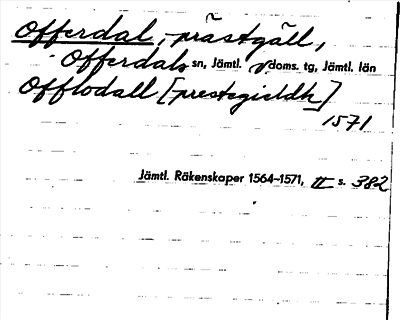 Offerdal, prästgäll,
Offerdals sn, Jämtl. v doms. tg, Jämtl. län
Offlodall [prestegieldh]
1571
Jämtl. Räkenskaper 1564-1571, II s. 382